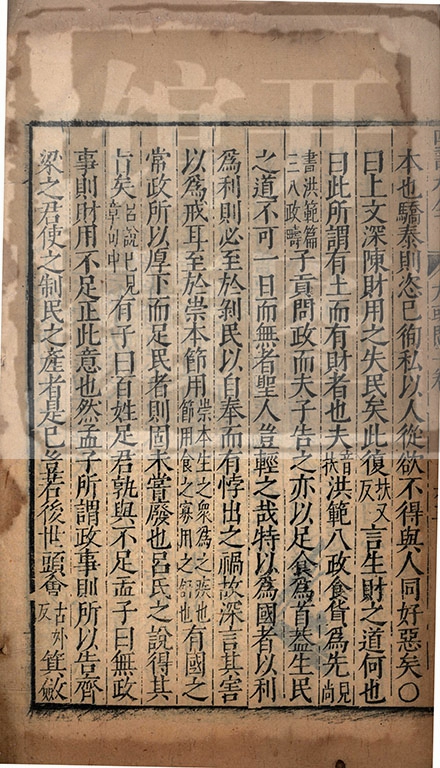 本也驕泰則恣已徇私以人從欲不得與人同好惡矣○
曰上文深陳財用之失民矣此復扶又反言生財之道何也
曰此所謂有上而有財者也夫音扶洪範八政食貨爲先見尚
書洪範篇三八政疇子貢問政而夫子告之亦以足食爲首蓋生民
之道不可一日而無者聖人豈輕之哉特以爲國者以利
爲利則必至於剥民以自奉而有悖出之禍故深言其害
以爲戒耳至於崇本節用崇本生之衆爲之疾也節用食之寡用之舒也有國之
常政所以厚下而足民者則固未嘗廢也呂氏之說得其
旨矣呂說已見章句中有子曰百姓足君孰與不足孟子曰無政
事則財用不足正此意也然孟子所謂政事則所以告齊
梁之君使之制民之產者是已豈若後世頭會古外反箕斂